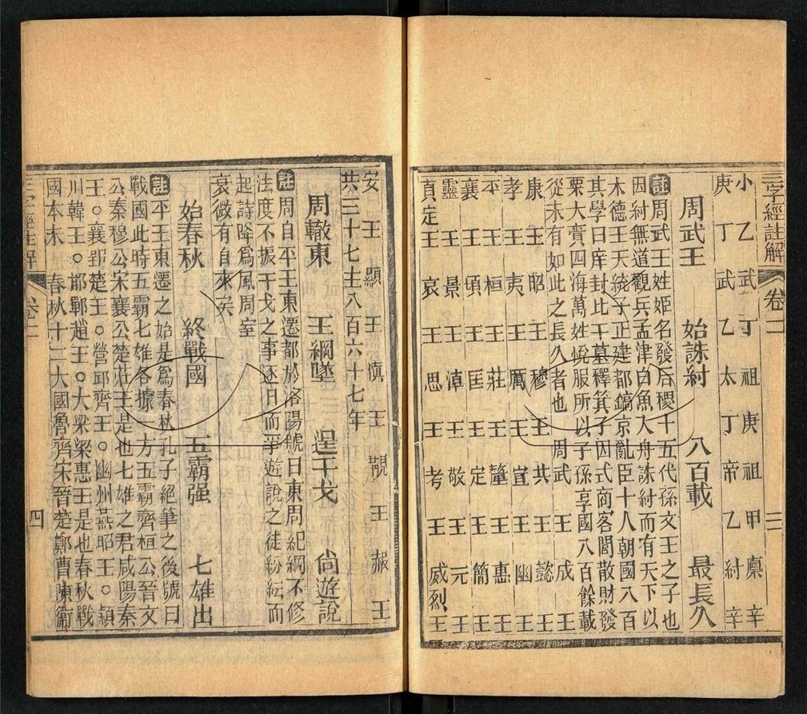 三字經註解 卷二 三
小乙 武丁 祖庚 祖甲 廩辛
庚丁 武乙 太丁 帝乙 紂辛
周武王 始誅紂 八百載 最長久
註周武王姓姬名發后稷十五代孫文王之子也
因紂無道觀兵孟津白魚入舟誅紂而有天下以
木德王天統子正建都鎬京亂臣十人朝國八百
其學曰庠封比干墓釋箕子囚式商容閭散財發
粟大賚四海萬姓悅服所以子孫享國八百餘載
從未有如此之長久者也 周武王 成王
康王 昭王 穆王 共王 懿王
孝王 夷王 厲王 宣王 幽王
平王 桓王 莊王 釐王 惠王
襄王 頃王 匡王 定王 簡王
靈王 景王 悼王 敬王 元王
貞定王 哀王 思王 考王 威烈王
安王 顯王 慎王 靚王 赧王
共三十七主八百六十七年
周轍東 王綱墜 逞干戈 尙遊說
註周自平王東遷都於洛陽號曰東周紀綱不修
法度不振干戈之事逐日而爭遊說之徒紛紜而
起詩降爲風周室
衰微有自來矣
始春秋 終戰國 五霸强 七雄出
註平王東遷之始是爲春秋孔子絕筆之後號曰
戰國此時五霸七雄各據一方五霸齊桓公晉文
公秦穆公宋襄公楚莊王是也七雄之君咸陽秦
王○襄郢楚王○營邱齊王○幽州燕昭王○潁
川韓王○邯鄲趙王○大梁梁惠王是也春秋戰
國本末 春秋十二大國魯齊宋晉楚鄭曹陳衞
三字經註解 卷二 四